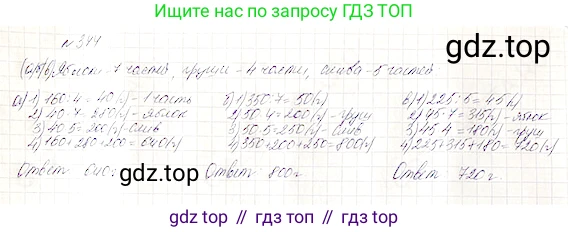 Ищите нас по запросу ГДЗ ТОП
№ 344
gdz.top
(а,б,в) Яблоки - 7 частей, груши - 4 части, слива - 5 частей
а) 1) 160:4=40(г) - 1 часть
2) 40·7=280(г) - яблок
3) 40·5=200(г) - слив
4) 160+280+200=640(г)
Ответ 640г.
б) 1) 350:7=50(г)
2) 50·4=200(г) - груш
3) 50·5=250(г) - слив
4) 350+200+250=800(г)
Ответ: 800г
в) 1) 225:5=45(г)
2) 45·7=315(г) - яблок
3) 45·4=180(г) - груш
4) 225+315+180=720(г)
Ответ: 720г.
gdz.top
gdz.top // гдз.топ // gdz.top // гдз.топ